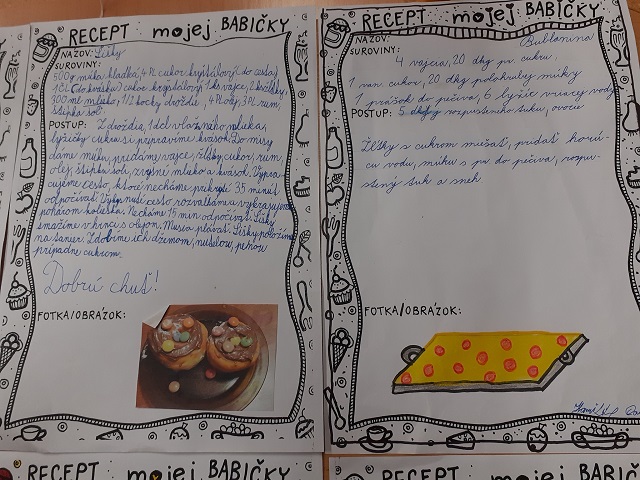 RECEPT mojej BABIČKY
NÁZOV: Šišky
SUROVINY:
500g múka hladká, 4 PL cukor kryštálový (do cesta)
1 ČL (do kvásku) cukor kryštálový 1 ks vajce, 2 žĺtky,
300 ml mlieko, 1/2 kocky droždie, 4 PL olej, 3 PL rum,
štipka soli
POSTUP: Z droždia, 1 dcl vlažného mlieka,
lyžičky cukru si pripravíme kvások. Do misy
dáme múku, pridáme vajce, žĺtky, cukor, rum,
olej, štipka soli, zvyšné mlieko a kvások. Vypra-
cujeme cesto, ktoré necháme prikryté 35 minút
odpočívať. Vykysnuté cesto rozvaľkáme a vykrajujeme
pohárom kolieska. Necháme 15 min. odpočívať. Šišky
smažíme v hrnci s olejom. Musia plávať. Šišky položíme
na tanier. Zdobíme ich džemom, nutelou,
prípadne cukrom.
Dobrú chuť!
FOTKA/OBRÁZOK:
RECEPT mojej BABIČKY
NÁZOV: Bublanina
SUROVINY:
4 vajcia, 20 dkg pr. cukru,
1 van. cukor, 20 dkg polohrubej múky
1 prášok do pečiva, 6 lyžíc vriacej vody
POSTUP: 5 dkg rozpusteného tuku, ovocie
Žĺtky s cukrom miešať, pridať horú-
cu vodu, múku s pr. do pečiva, rozpu-
stený tuk a sneh
FOTKA/OBRÁZOK:
RECEPT mojej BABIČKY
RECEPT mojej BABIČKY